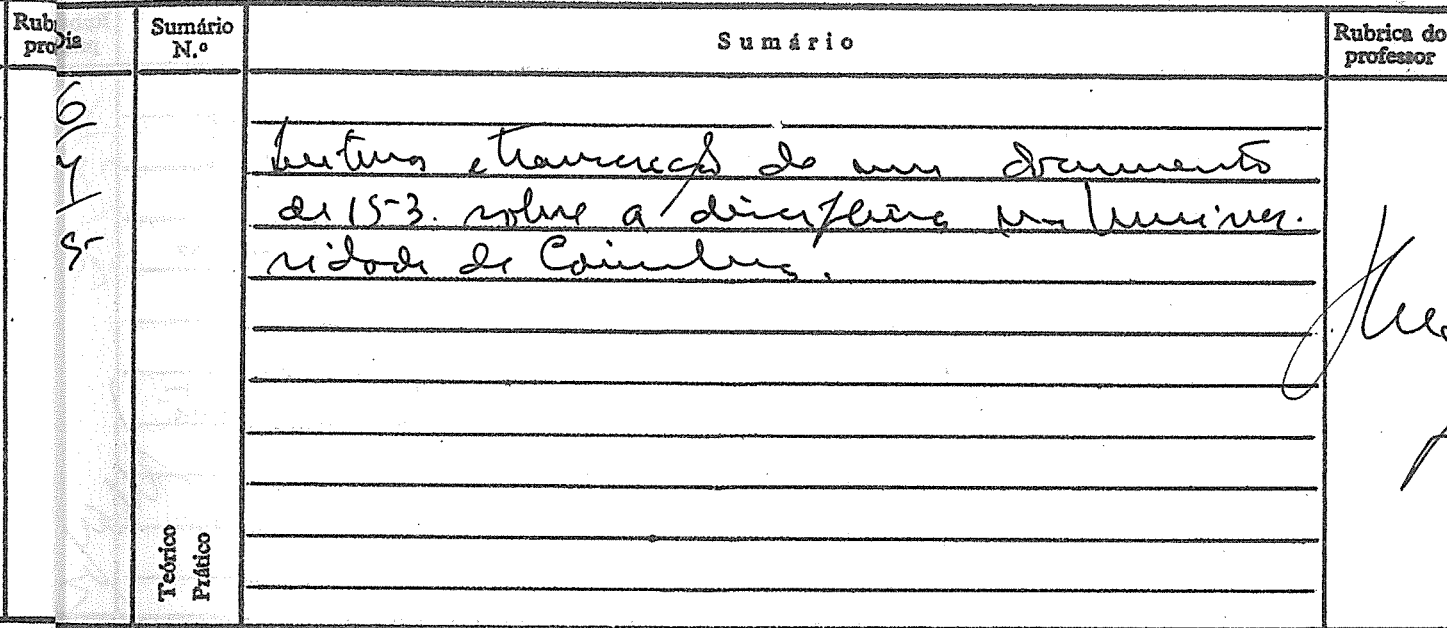 Rub Dia Sumário Sumário Rubrica do
pro N.º professor
6
Leitura e transcrição de um documento
de 153. sobre a disciplina na Univer.
sidade de Coimbra.
Teórico
Prático